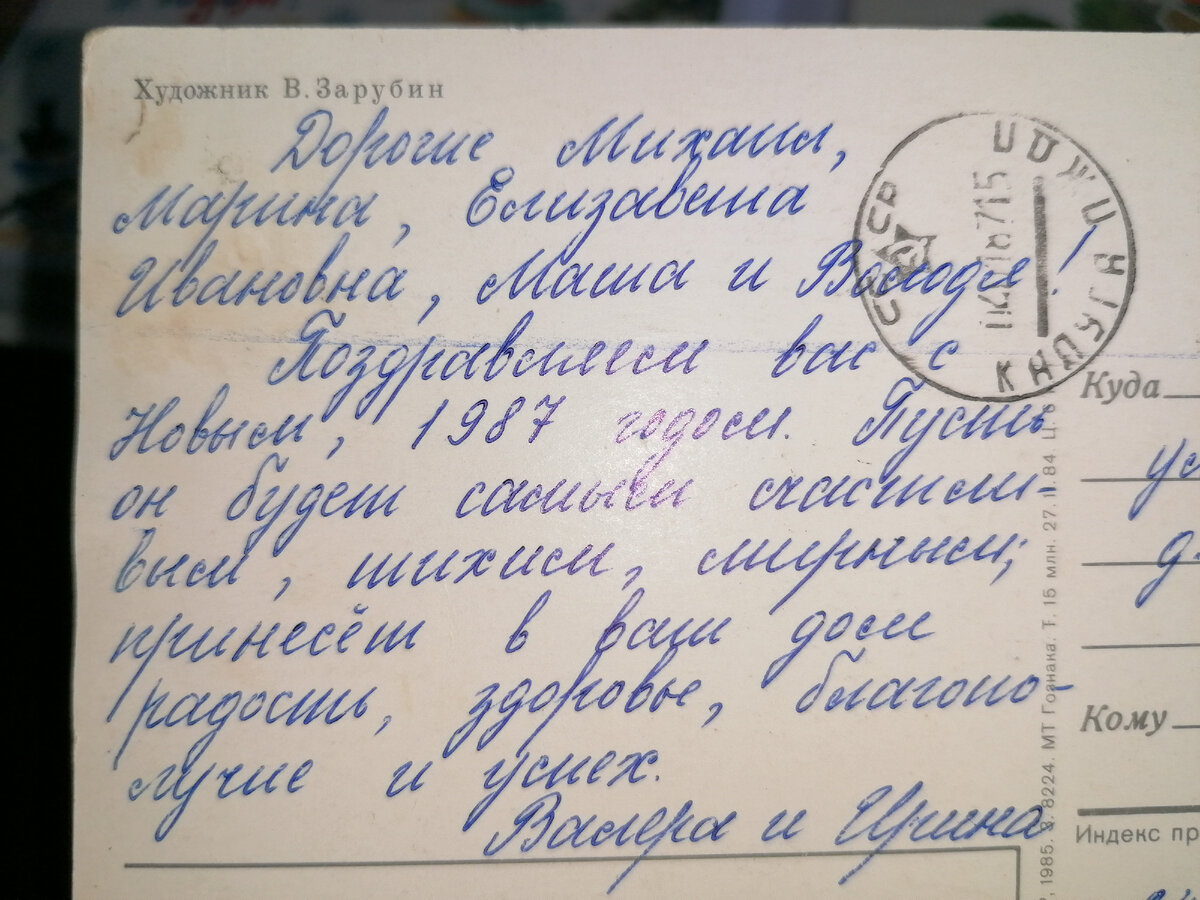 Художник В. Зарубин
Дорогие Михаил,
Марина, Елизавета
Ивановна, Маша и Володя!
Поздравляем вас с
Новым, 1987 годом. Пусть
он будет самым счастли-
вым, тихим, мирным;
принесёт в ваш дом
радость, здоровье, благопо-
лучие и успех.
Валера и Ирина
СССР
Куда
Кому
Индекс пр
1985. З. 8224. МТ Гознака. Т. 15 млн. 27. II. 84 Ц.